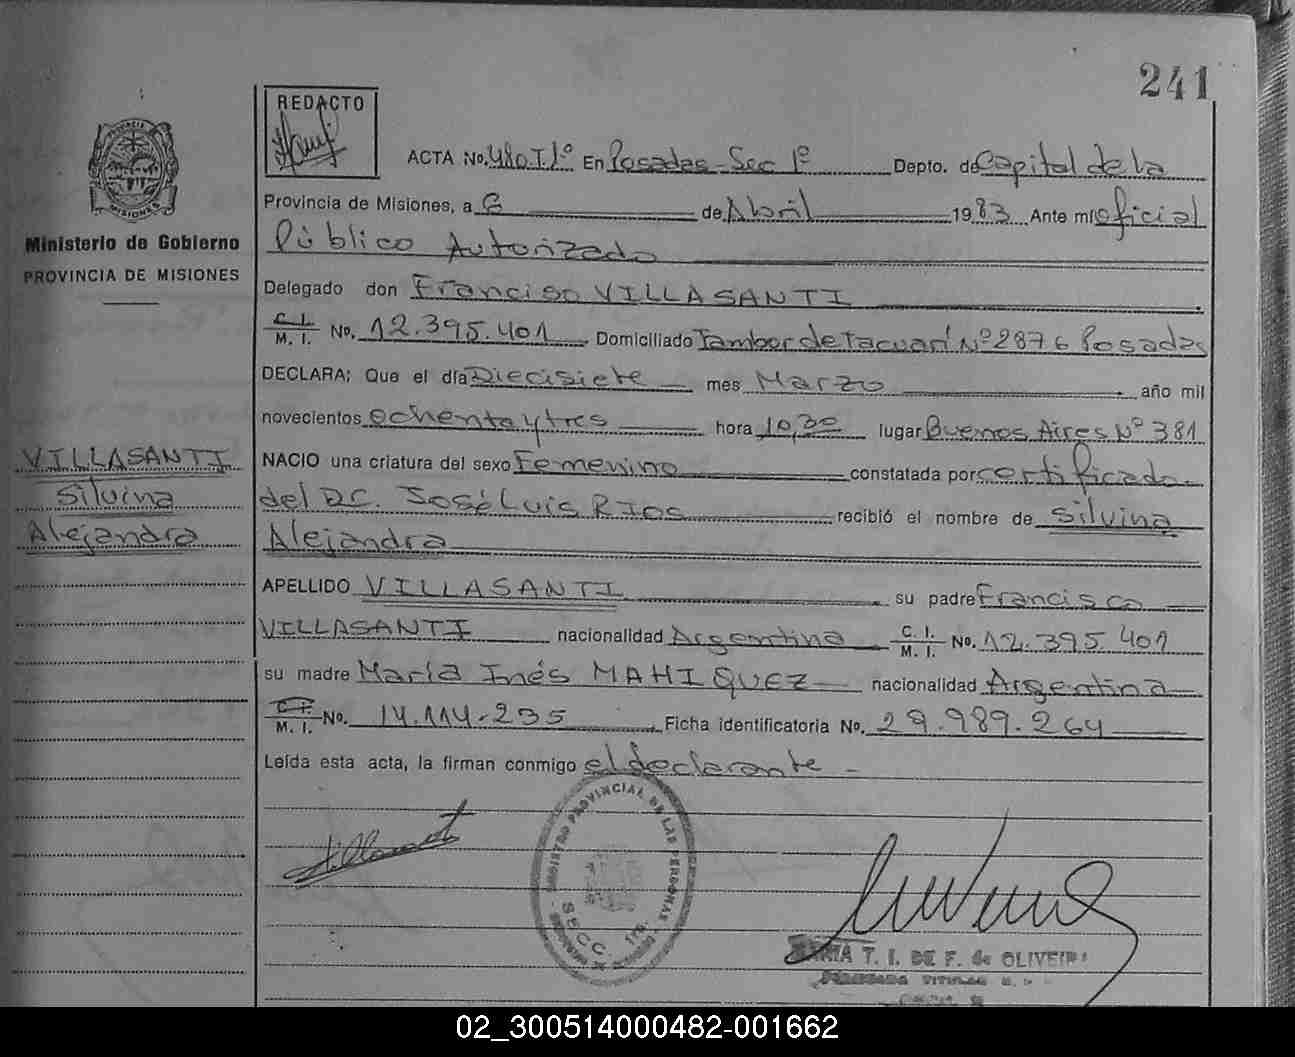 241
REDACTO
ACTA No. 480 T 1º En Posadas - Sec 1º Depto. de Capital de la
Provincia de Misiones, a 6 de Abril 1983 Ante mi oficial
Público Autorizado
Delegado don Franciso VILLASANTI
C. I.
M. I. No. 12.395.401 Domiciliado Tambor de Tacuarí Nº 2876 Posadas
DECLARA: Que el día Diecisiete mes Marzo año mil
novecientos ochenta y tres hora 10,30 lugar Buenos Aires Nº 381
NACIO una criatura del sexo Femenino constatada por certificado
del DC. José Luis RIOS recibió el nombre de Silvina
Alejandra
APELLIDO VILLASANTI su padre Francisco
VILLASANTI nacionalidad Argentina C. I.
M. I. No. 12.395.401
su madre María Inés MAHIQUEZ nacionalidad Argentina
C. I.
M. I. No. 14.114.235 Ficha identificatoria No. 29.989.264
Leída esta acta, la firman conmigo el declarante -
PROVINCIA
MISIONES
Ministerio de Gobierno
PROVINCIA DE MISIONES
VILLASANTI
Silvina
Alejandra
REGISTRO PROVINCIAL DE LAS PERSONAS
SECC. 1ra.
T. I. DE F. de OLIVEIRA
TITULAR
02_300514000482-001662